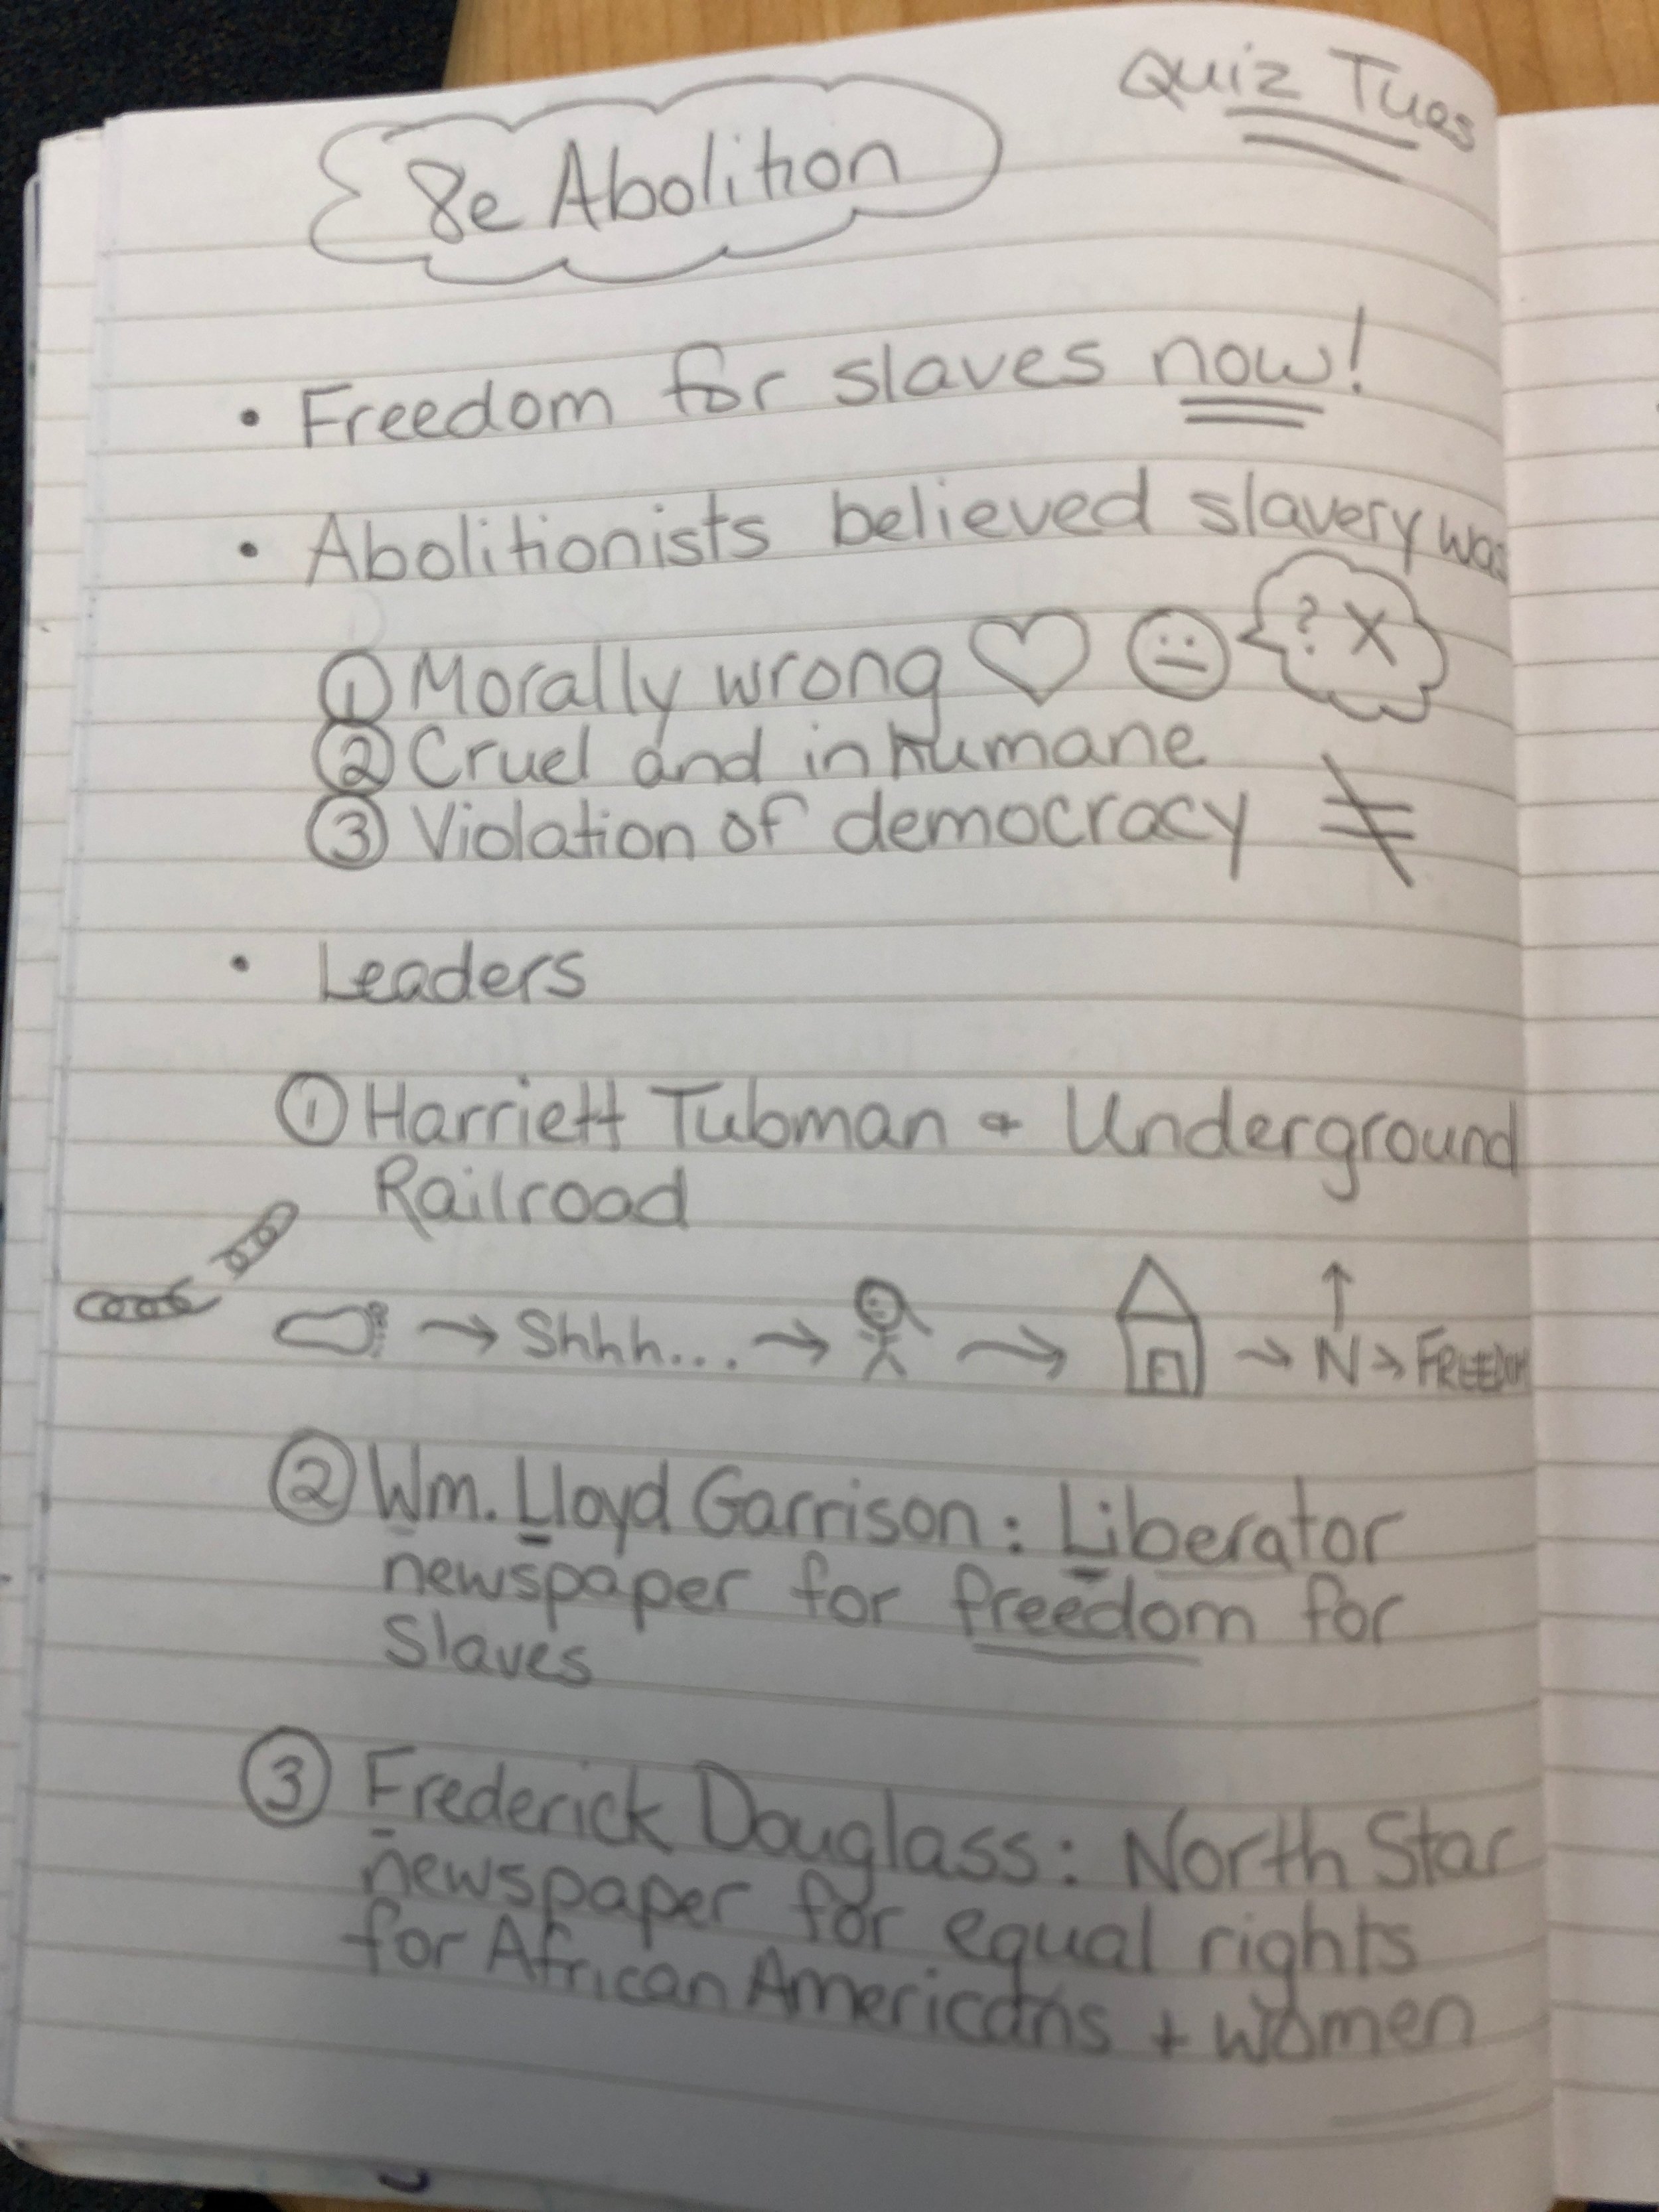 Quiz Tues
8e Abolition
• Freedom for slaves now!
• Abolitionists believed slavery was
① Morally wrong
? X
② Cruel and inhumane
③ Violation of democracy ≠
• Leaders
① Harriett Tubman + Underground
Railroad
→ Shhh... → → → N → FREEDOM
② Wm. Lloyd Garrison: Liberator
newspaper for freedom for
Slaves
③ Frederick Douglass: North Star
newspaper for equal rights
for African Americans + women